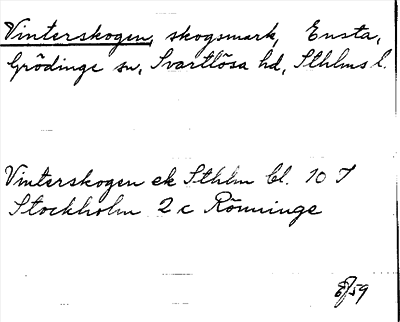 Vinterskogen, skogsmark, Ensta,
Grödinge sn, Svartlösa hd, Sthlms l.
Vinterskogen ek Sthlm bl. 10 I
Stockholm 2 c Rönninge
8/59